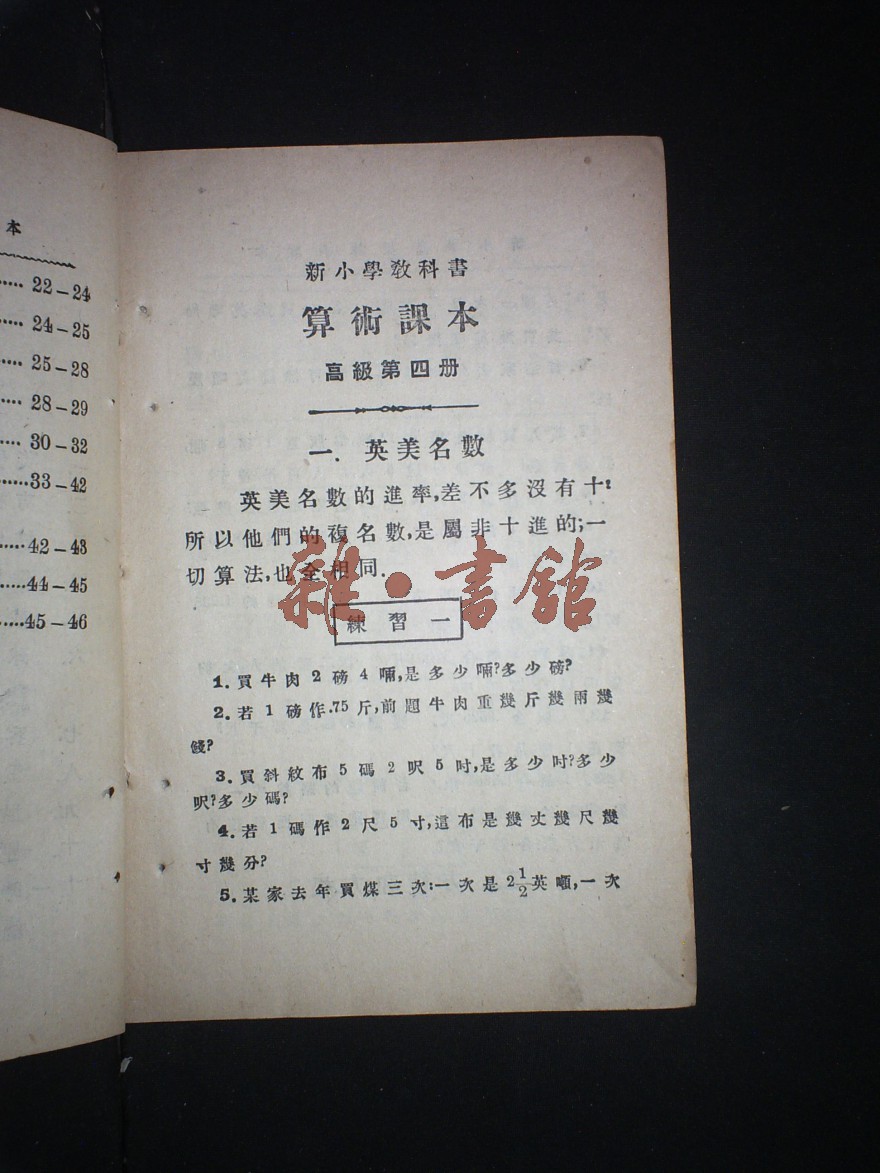 本
22–24
24–25
25–28
28–29
30–32
33–42
42–43
44–45
45–46
新小學教科書
算術課本
高級第四册
一. 英美名數
英美名數的進率,差不多沒有十:
所以他們的複名數,是屬非十進的;一
切算法,也全相同.
雜·書館
練習一
1. 買牛肉2磅4啢,是多少啢?多少磅?
2. 若1磅作.75斤,前題牛肉重幾斤幾兩幾
錢?
3. 買斜紋布5碼2呎5吋,是多少吋?多少
呎?多少碼?
4. 若1碼作2尺5寸,這布是幾丈幾尺幾
寸幾分?
5. 某家去年買煤三次:一次是2½英噸,一次